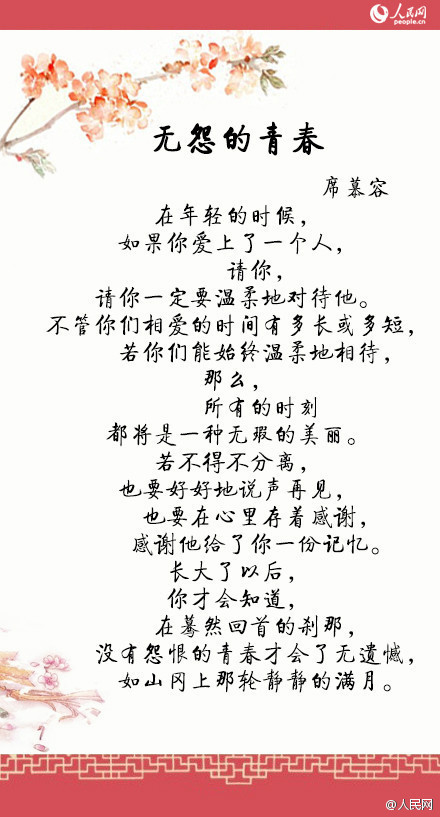 人民网
people.cn
无怨的青春
席慕容
在年轻的时候，
如果你爱上了一个人，
请你，
请你一定要温柔地对待他。
不管你们相爱的时间有多长或多短，
若你们能始终温柔地相待，
那么，
所有的时刻
都将是一种无瑕的美丽。
若不得不分离，
也要好好地说声再见，
也要在心里存着感谢，
感谢他给了你一份记忆。
长大了以后，
你才会知道，
在蓦然回首的刹那，
没有怨恨的青春才会了无遗憾，
如山冈上那轮静静的满月。
@人民网